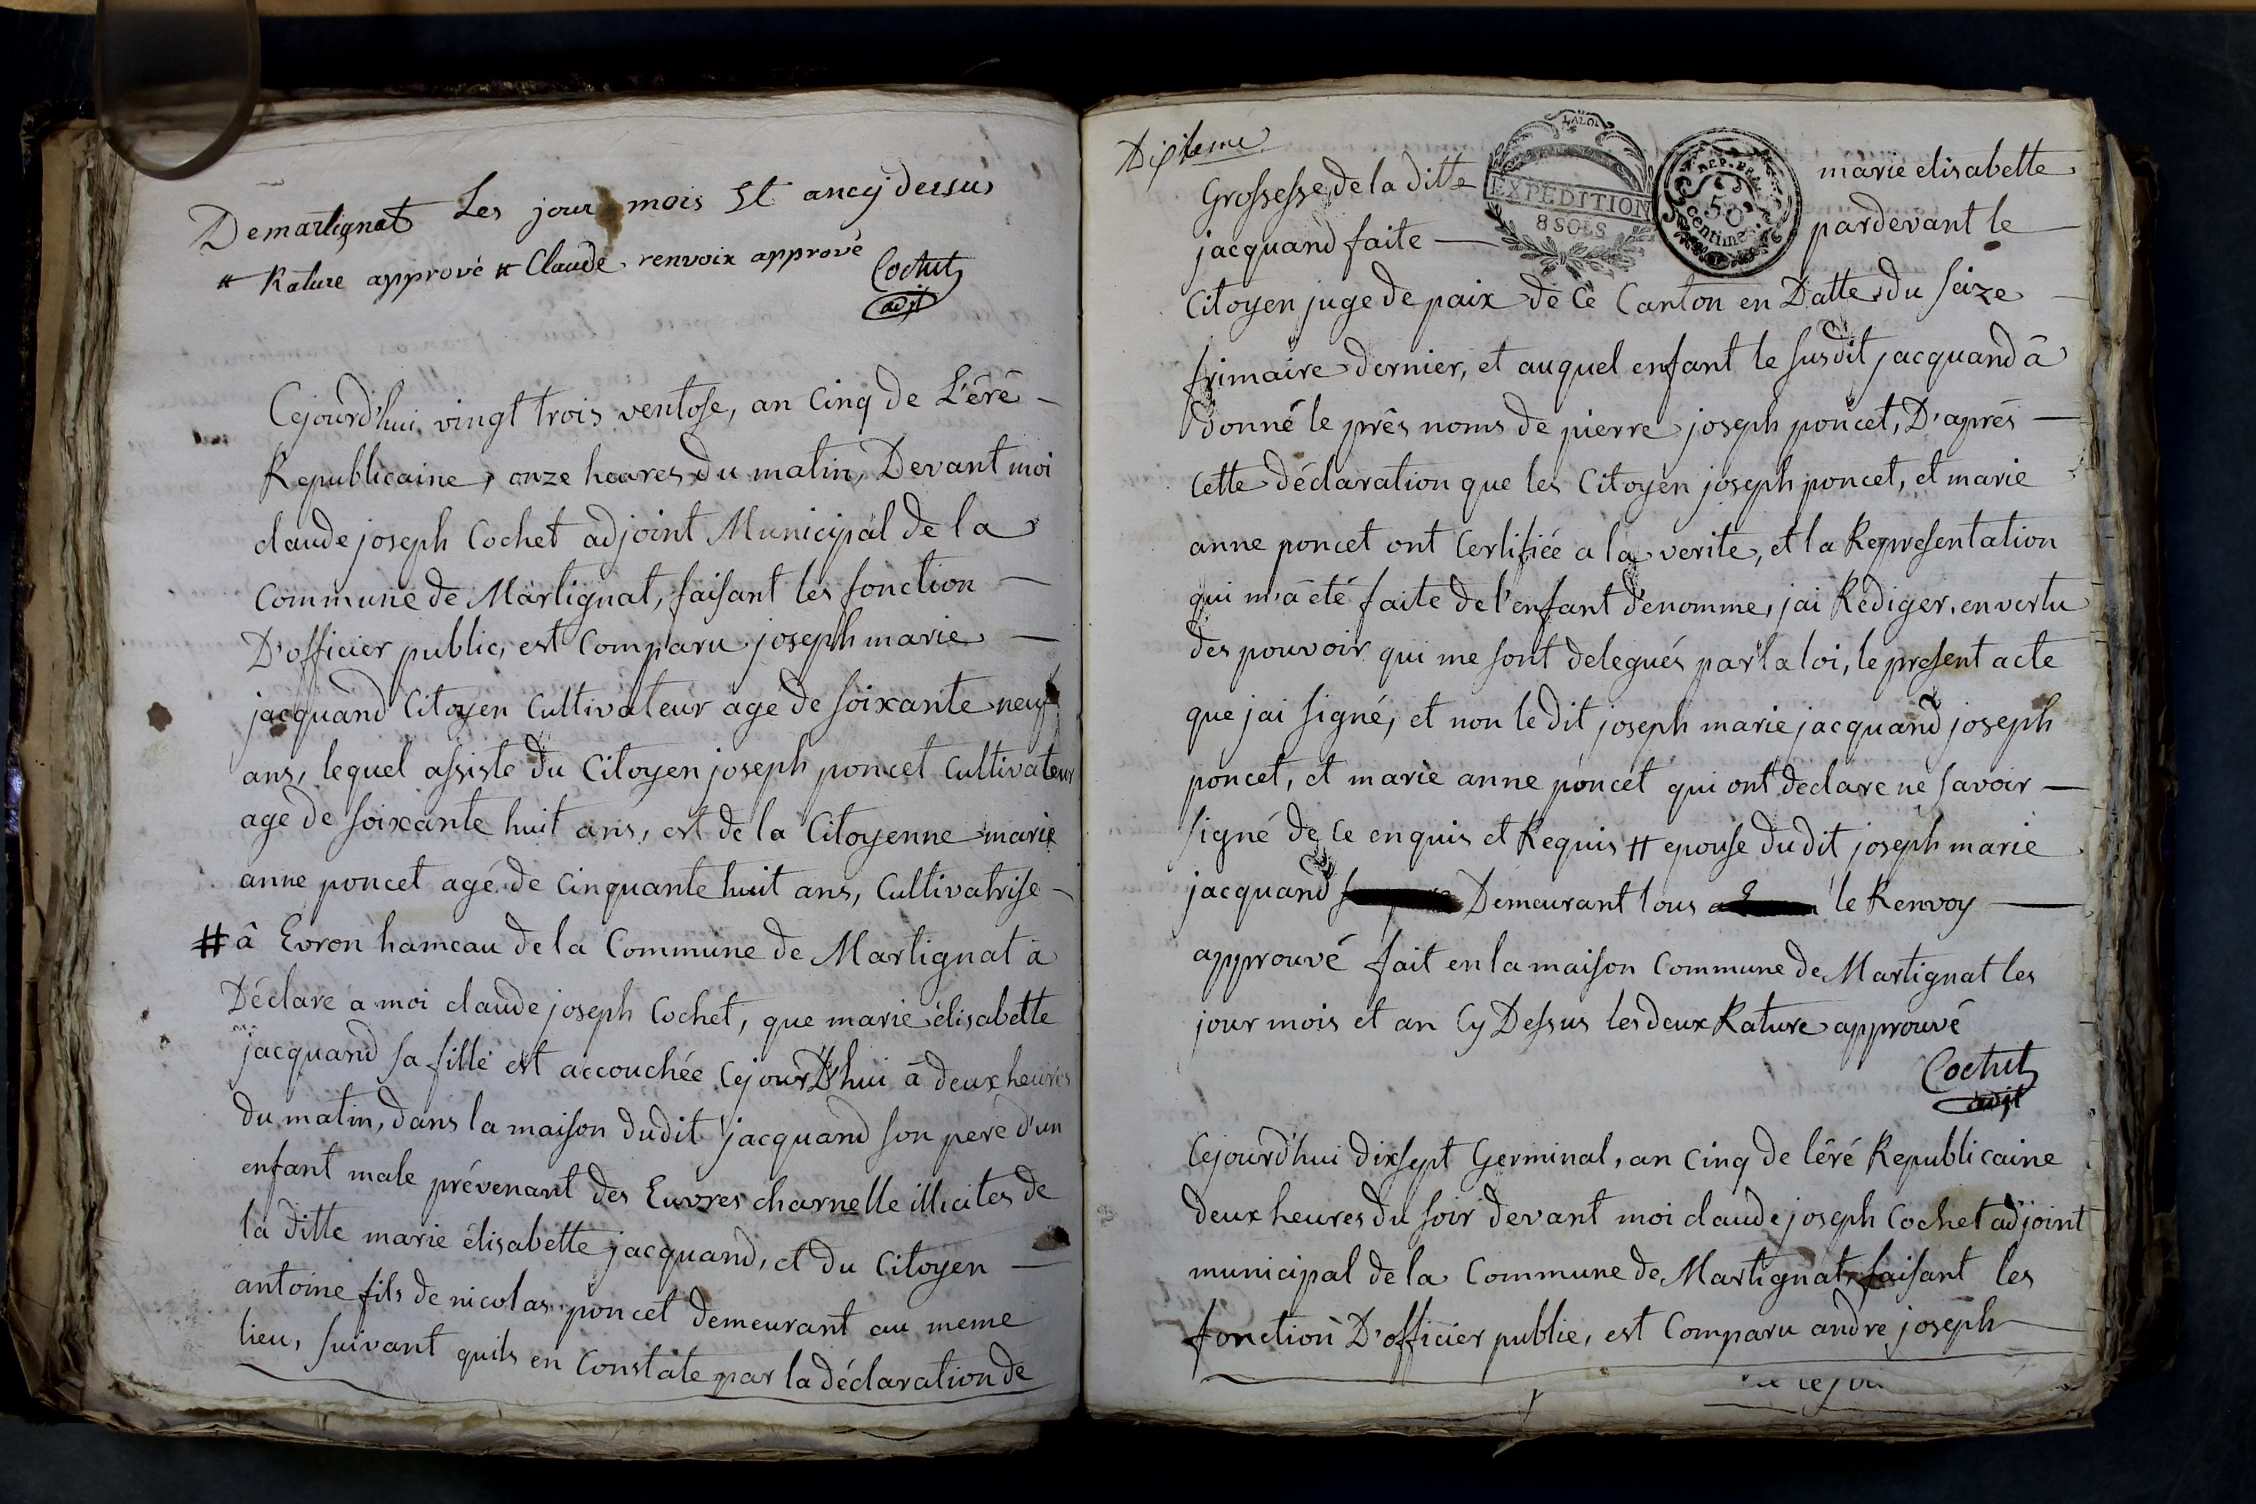 Demartignat Les jour mois Et ancy dessus
# Rature apprové # Claude renvoix apprové
Cochet
adjt
Cejourd'hui vingt trois ventose, an Cinq de L'êrê
Republicaine, onze heures du matin, Devant moi
claude joseph Cochet adjoint Municipal de la
Commune de Martignat, faisant les fonction
D'officier public, est Comparu joseph marie
jacquand Citoyen Cultivateur age de soixante neuf
ans, lequel assiste du Citoyen joseph poncet Cultivateur
age de soixante huit ans, est de la Citoyenne marie
anne poncet agé de Cinquante huit ans, Cultivatrise
# â Evron hameau de la Commune de Martignat à
Déclare a moi claude joseph Cochet, que marie élisabette
jacquand sa fille est accouchée Cejourd'hui â deux heures
du matin, dans la maison dudit jacquand son pere d'un
enfant male prévenant des Euvres charnelle illicites de
la ditte marie élisabette jacquand, et du Citoyen
antoine fils de nicolas poncet demeurant au meme
lieu, suivant quils en Constate par la déclaration de
Grossesse de la ditte marie elisabette
LA LOI
EXPEDITION
8 SOLS
REP. FRA.
50
centimes
jacquand faite pardevant le
Citoyen juge de paix de Ce Canton en Datte du seize
frimaire dernier, et auquel enfant le susdit jacquand â
donné le prês noms de pierre joseph poncet, D'aprés
Cette déclaration que les Citoyen joseph poncet, et marie
anne poncet ont Certifiée a la verite, et la Representation
qui m'â été faite de l'enfant dénomme, jai Rédiger, en vertu
des pouvoir qui me sont delegués par la loi, le present acte
que jai signé, et non le dit joseph marie jacquand joseph
poncet, et marie anne poncet qui ont déclare ne savoir
signé de Ce enquis et Requis # epouse dudit joseph marie
jacquand Demeurant tous le Renvoy
approuvé fait en la maison Commune de Martignat les
jour mois et an Cy Dessus les deux Rature approuvé
Cochet
adjt
Cejourd'hui dix sept Germinal, an Cinq de lêré Republicaine
deux heures du soir devant moi claude joseph Cochet adjoint
municipal de la Commune de Martignat, faisant les
fonction D'officier public, est Comparu andre joseph